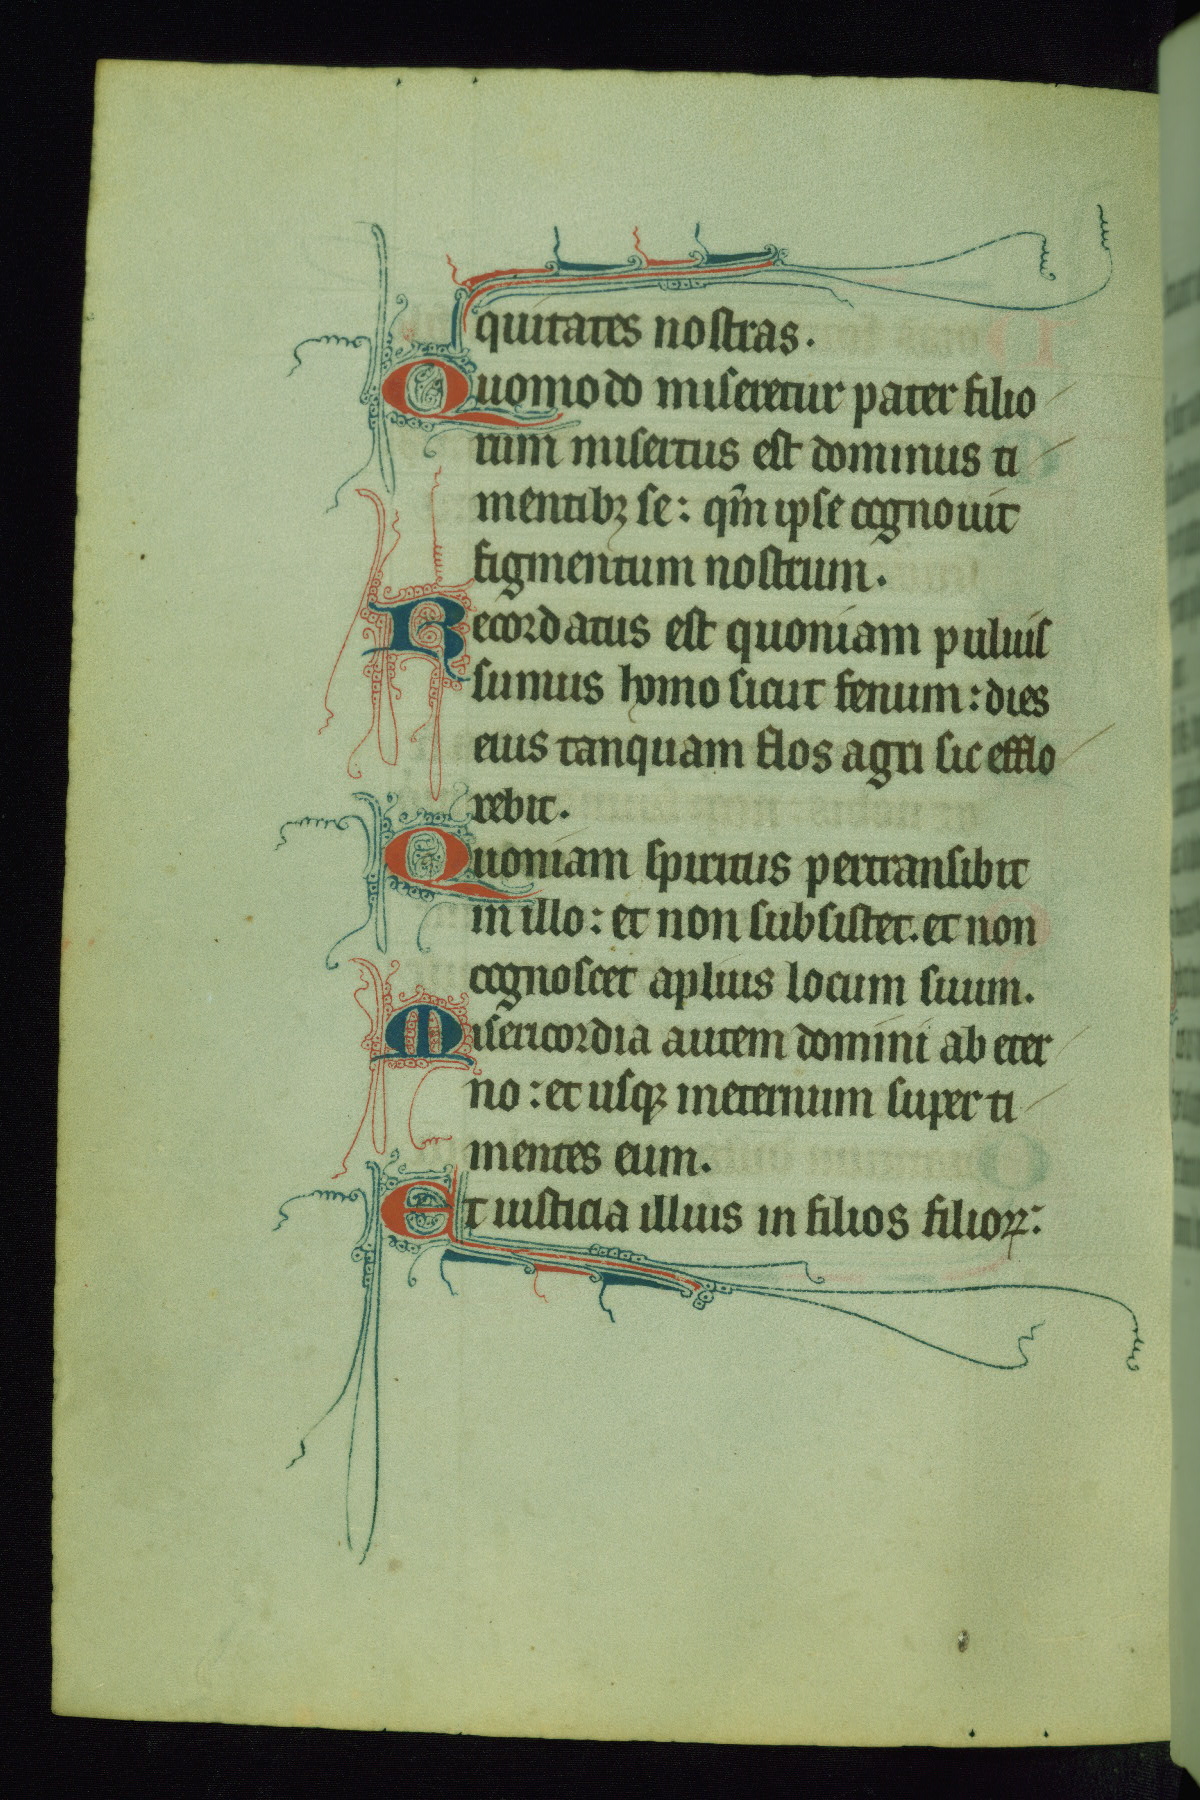 quitates nostras.
Quomodo miseretur pater filio
rum misertus est dominus ti
mentibꝫ se: qm̄ ipse cognouit
figmentum nostrum.
Recordatus est quoniam puluis
sumus homo sicut fenum: dies
eius tanquam flos agri sic efflo
rebit.
Quoniam spiritus pertransibit
in illo: et non subsistet. et non
cognoscet aplius locum suum.
Misericordia autem domini ab eter
no: et usqꝫ ineternum super ti
mentes eum.
Et iusticia illius in filios filioꝝ: